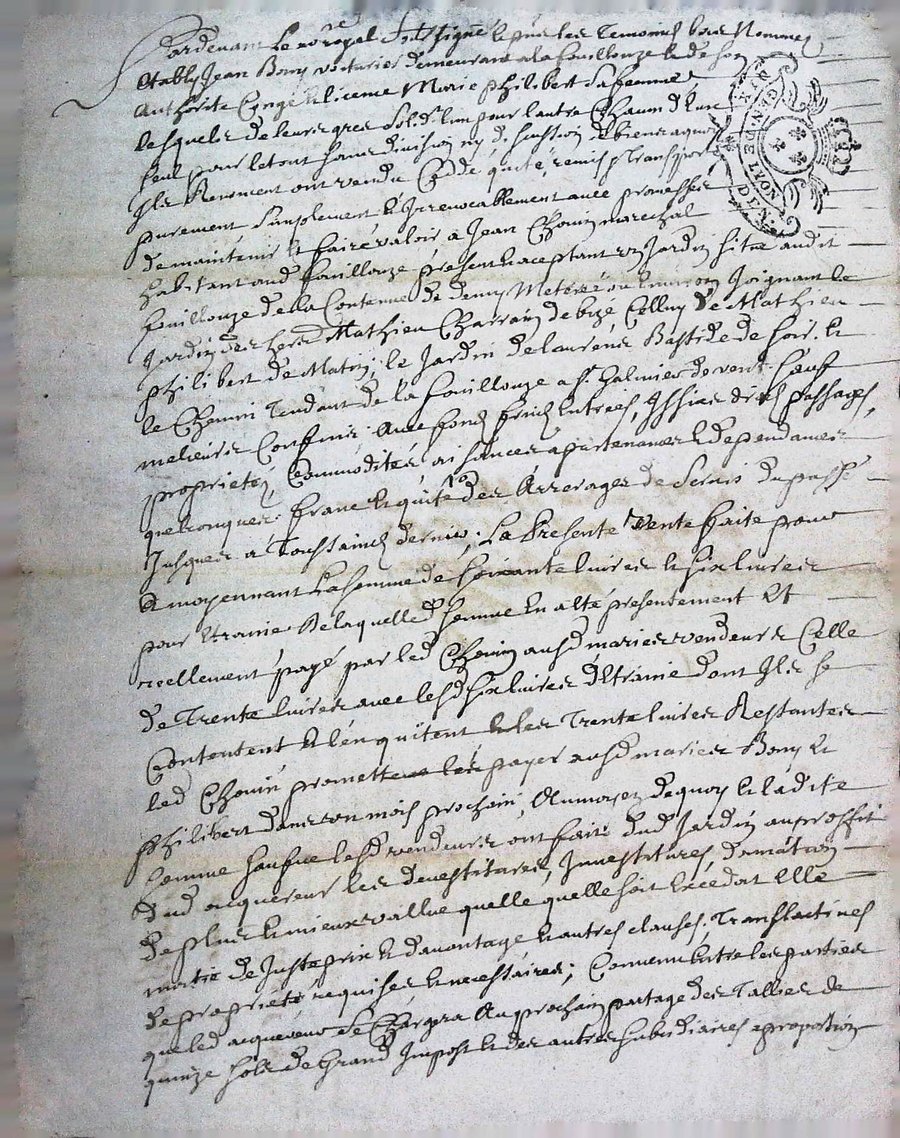 Pardevant Le no.re royal soussigné & pnts les Temoins bas Nommez
Etably Jean Bony voiturier demeurant a la fouillouze Et de son
Authorite Congé & licence Marie philibert sa femme
lesquels de leurs gres solid. l'un pour l'autre Chaun d'Eux
seul pour le tout sans division ny d. discussion de biens a quoy
Ils Renoncent ont vendu Ceddé quité remis & Transporte
purement simplement & Irrevocablement avec promesses
de maintenir & faire valoir a Jean Chovin marechal
habitant aud. fouillouze present & acceptant un Jardin sitúe audit
fouillouze de la Contenue de demy Meterée ou Environ Joignant le
Jardin des her. Mathieu Charrain de bize Celluy de Mathieu
philibert de Matin; le Jardin de laurens Bastide de soir &
le Chemin Tendant de la fouillouze a St. Galmier de vent sauf
meilleurs Confins: Avec fond fruits Entrees, Issües droits passages,
proprietez Commodités aisances apartenances & dependances
quelconques: franc & quite des Arrerages de servis du passé
Jusques a Toussaincts dernier: La Presente Vente faite pour
& moyennant la somme de soixante livres & six livres
pour Etraine De laquelle somme En a esté presentement Et
reellement payé par led. Chovin ausd. mariez vendeurs Celle
de Trente livres avec lesd. six livres d'Etraine dont Ils se
Contentent & l'en quittent & les Trente livres Restantes
led. Chovin promet les payer ausd. mariez Bony &
philibert dans un mois prochain, Au moyen de quoy & ladite
somme sauf lesd. vendeurs ont faits dud. Jardin au proffit
dud. acquereur les devestitures, Investitures, donnation
de plus & mieux vallue quelle quelle soit Excedat Elle
moitie de Juste prix & davantage & autres clauses Translactives
de propriété requises & necessaires; Convenu Entre les parties
que led. acquereur se Chargra Au prochain partage des Tallies de
quinze sols de Grand Impost & des autres subsidiaires a proportion
GEN. DE LYON